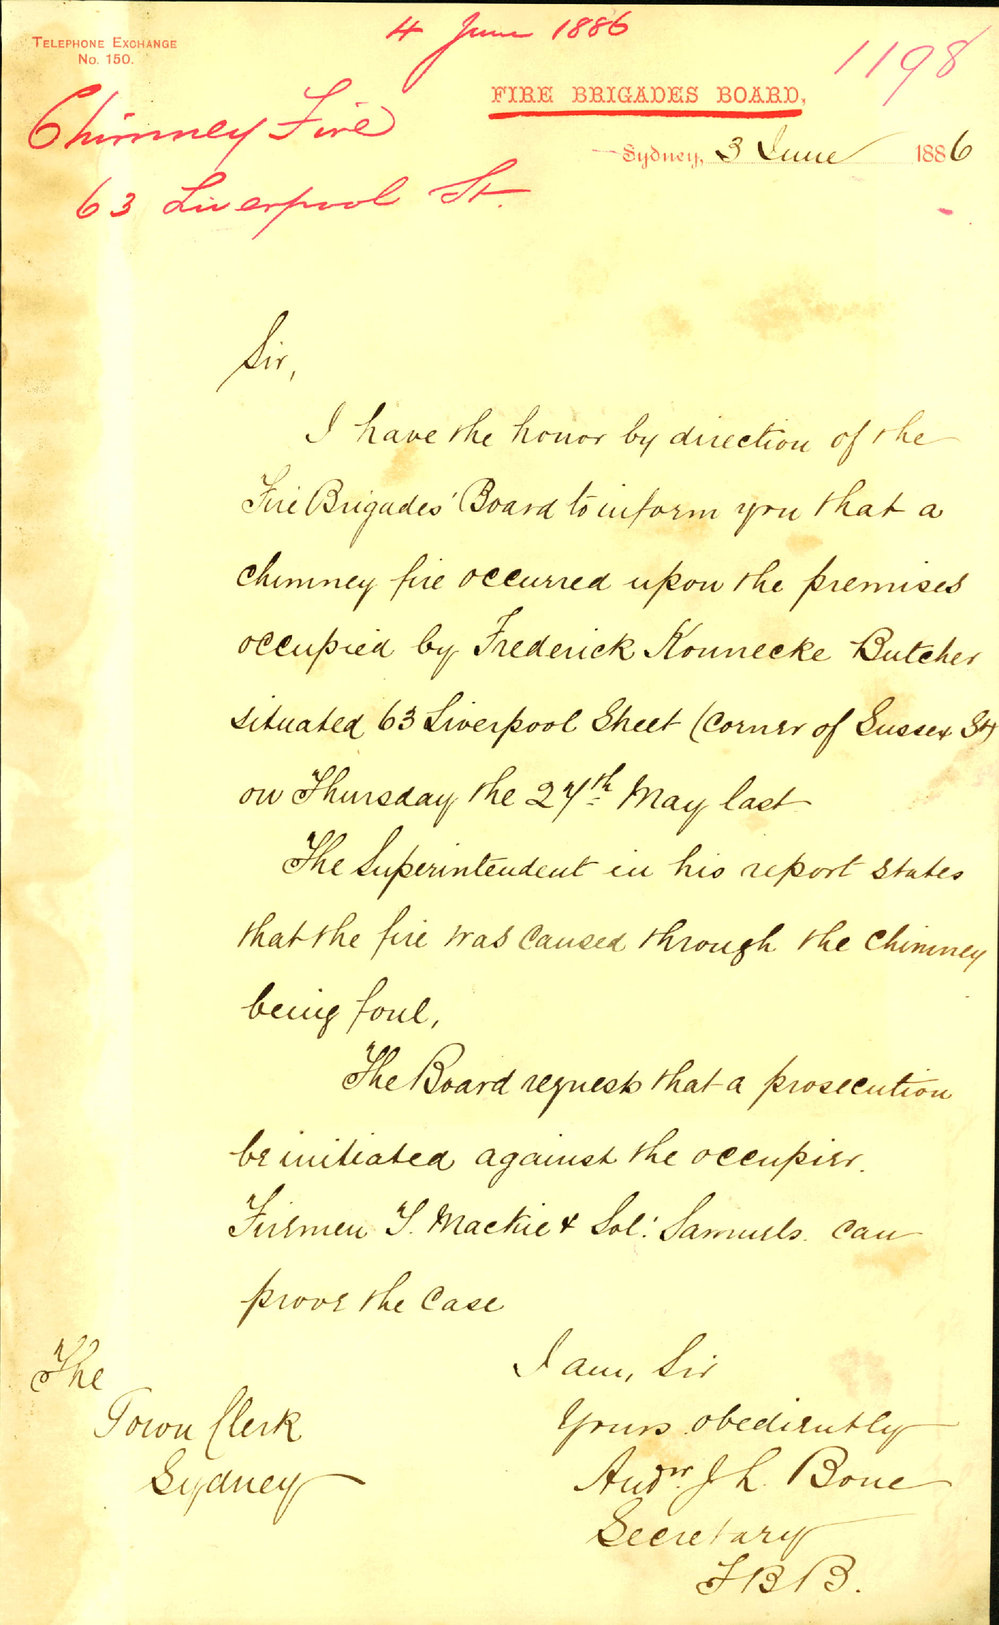 4 June 1886
TELEPHONE EXCHANGE
No. 150.
1198
FIRE BRIGADES BOARD,
Chimney Fire
Sydney, 3 June 1886
63 Liverpool St.
Sir,
I have the honor by direction of the
Fire Brigades' Board to inform you that a
chimney fire occurred upon the premises
occupied by Frederick Konnecke Butcher
situated 63 Liverpool Street (corner of Sussex St)
on Thursday the 27th May last
The Superintendent in his report states
that the fire was caused through the chimney
being foul,
The Board requests that a prosecution
be initiated against the occupier.
Firemen T. Mackie & Sol: Samuels. can
prove the case
I am, Sir
Yours obediently
Andw. J L. Bone
Secretary
F B B.
The
Town Clerk
Sydney